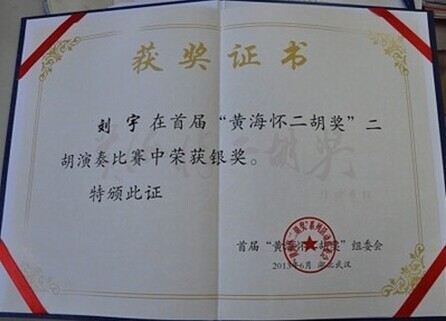 获奖证书
刘宇在首届“黄海怀二胡奖”二
胡演奏比赛中荣获银奖。
特颁此证
首届“黄海怀二胡奖”组委会
2013年6月 湖北武汉